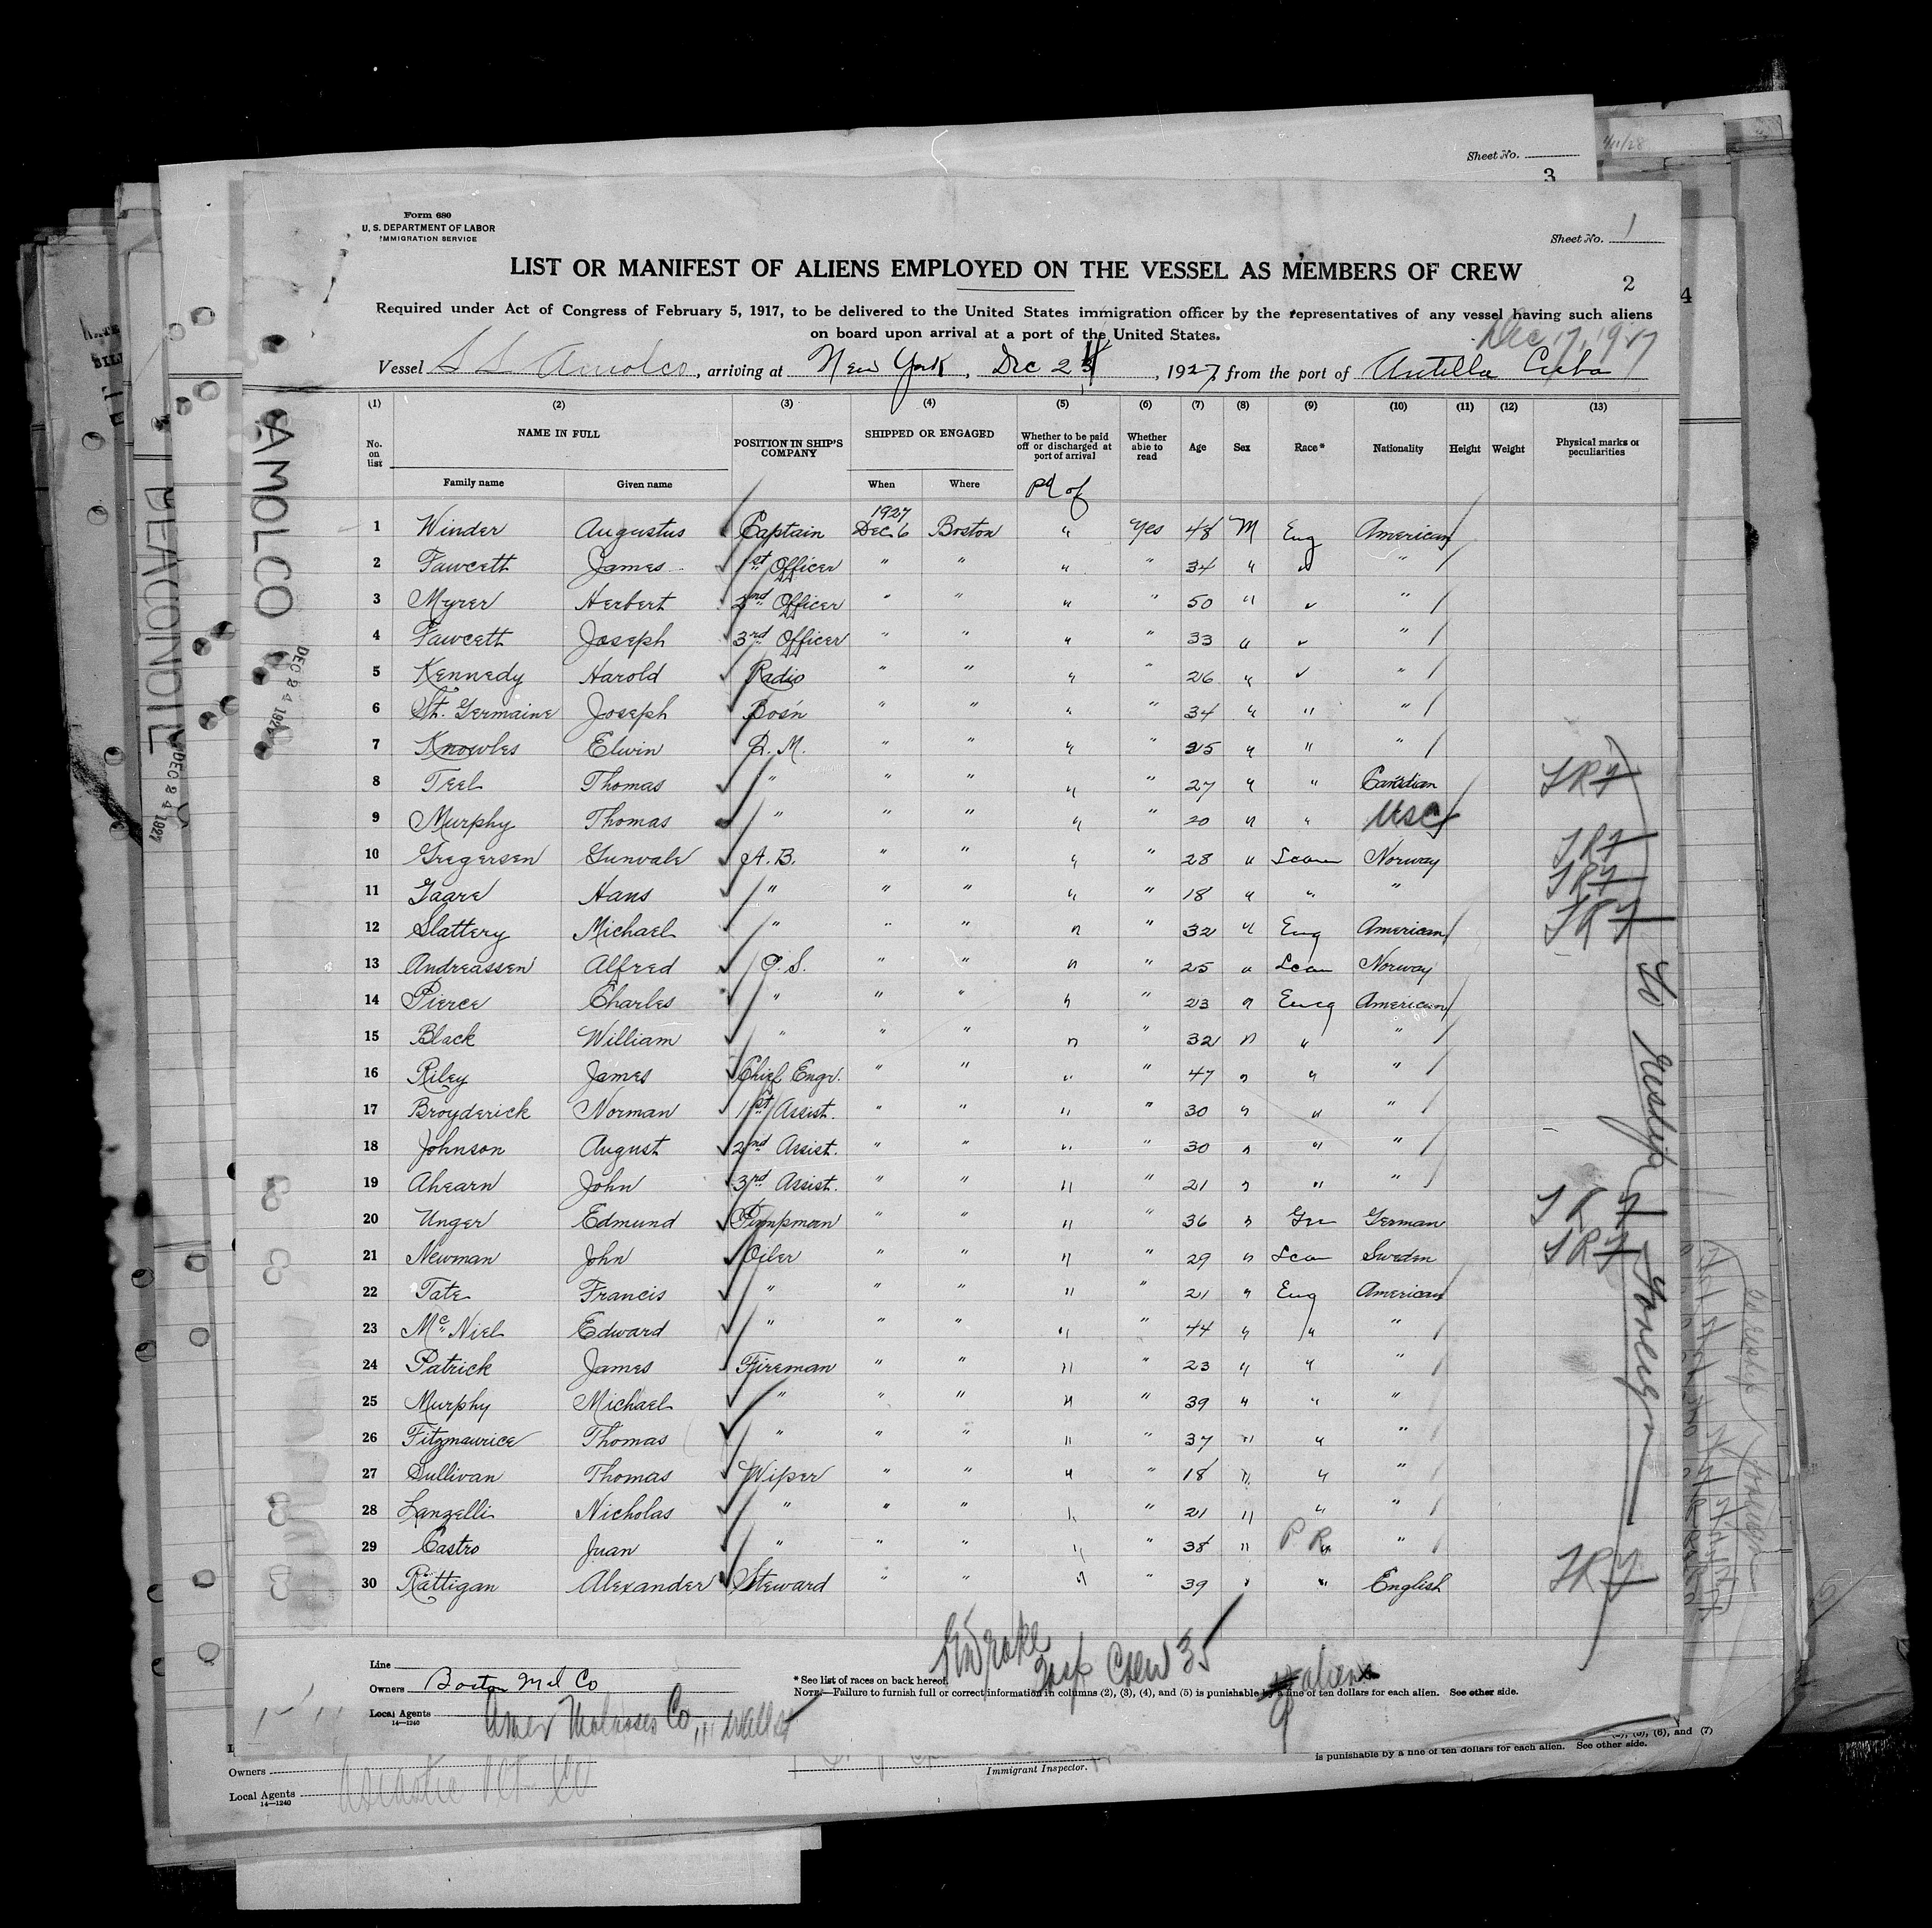 Sheet No.
3
4/11/28
Form 680
U. S. DEPARTMENT OF LABOR
IMMIGRATION SERVICE
Sheet No. 1
LIST OR MANIFEST OF ALIENS EMPLOYED ON THE VESSEL AS MEMBERS OF CREW
2
4
Required under Act of Congress of February 5, 1917, to be delivered to the United States immigration officer by the representatives of any vessel having such aliens
on board upon arrival at a port of the United States.
Dec 17, 1927
Vessel S S Amolco, arriving at New York, Dec 24, 1927, from the port of Antilla Cuba
(1) (2) (3) (4) (5) (6) (7) (8) (9) (10) (11) (12) (13)
No. on list NAME IN FULL POSITION IN SHIP'S COMPANY SHIPPED OR ENGAGED Whether to be paid off or discharged at port of arrival Whether able to read Age Sex Race* Nationality Height Weight Physical marks or peculiarities
Family name Given name When Where
Pd of
1927
1 Winder Augustus Captain Dec 6 Boston " Yes 48 M Eng American
2 Fawcett James 1st Officer " " " " 34 " " "
3 Myrer Herbert 2nd Officer " " " " 50 " " "
4 Fawcett Joseph 3rd Officer " " " " 33 " " "
5 Kennedy Harold Radio " " " " 26 " " "
6 St. Germaine Joseph Bos'n " " " " 34 " " "
7 Knowles Elwin Q. M. " " " " 25 " " "
8 Teel Thomas " " " " " 27 " " Canadian
9 Murphy Thomas " " " " " 20 " " USC
10 Gregersen Gunvale A. B. " " " " 28 " Scan Norway
11 Gaare Hans " " " " " 18 " " "
12 Slattery Michael " " " " " 32 " Eng American
13 Andreassen Alfred O. S. " " " " 25 " Scan Norway
14 Pierce Charles " " " " " 23 " Eng American
15 Black William " " " " " 32 " " "
16 Riley James Chief Engr. " " " " 47 " " "
17 Broyderick Norman 1st Assist. " " " " 30 " " "
18 Johnson August 2nd Assist. " " " " 30 " " "
19 Ahearn John 3rd Assist. " " " " 21 " " "
20 Unger Edmund Pumpman " " " " 36 " Ger German
21 Newman John Oiler " " " " 29 " Scan Sweden
22 Tate Francis " " " " " 21 " Eng American
23 Mc Niel Edward " " " " " 44 " " "
24 Patrick James Fireman " " " " 23 " " "
25 Murphy Michael " " " " " 39 " " "
26 Fitzmaurice Thomas " " " " " 37 " " "
27 Sullivan Thomas Wiper " " " " 18 " " "
28 Lanzelli Nicholas " " " " " 21 " " "
29 Castro Juan " " " " " 38 " P R "
30 Rattigan Alexander Steward " " " " 39 " " English
To Reship Foreign
AMOLCO
DEC 24 1927
BEACONOIL
DEC 24 1927
Insp Crew 35
aliens
Line
Owners Boston Mol Co
Local Agents Amer Molasses Co, 111 Wall St
14—1240
* See list of races on back hereof.
NOTE.—Failure to furnish full or correct information in columns (2), (3), (4), and (5) is punishable by a fine of ten dollars for each alien. See other side.
(6), and (7)
is punishable by a fine of ten dollars for each alien. See other side.
Owners
Immigrant Inspector.
Local Agents
14—1240